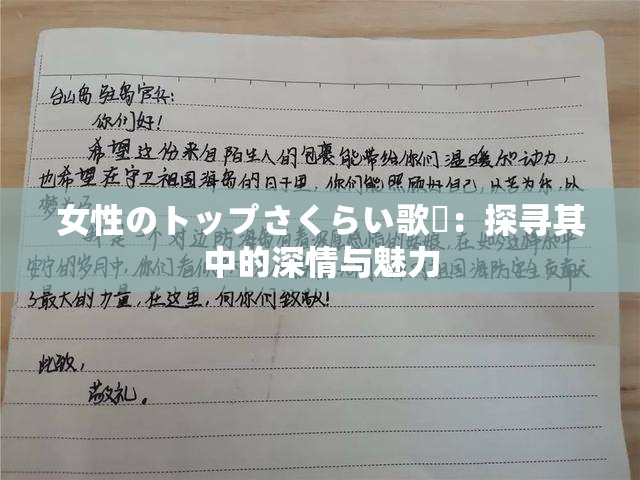 台山岛驻岛官兵:
你们好!
希望这份来自陌生人的包裹能带给你们温暖和动力,
也希望在守卫祖国海岛的日子里,你们能照顾好自己,以苦为乐,以
梦为
女性のトップさくらい歌:探寻其
中的深情与魅力
是一个对边防海岛有着
安宁的岁月中,你们 祖国海防安全贡献
了最大的力量,在这里,向你们致敬!
此致,
敬礼。